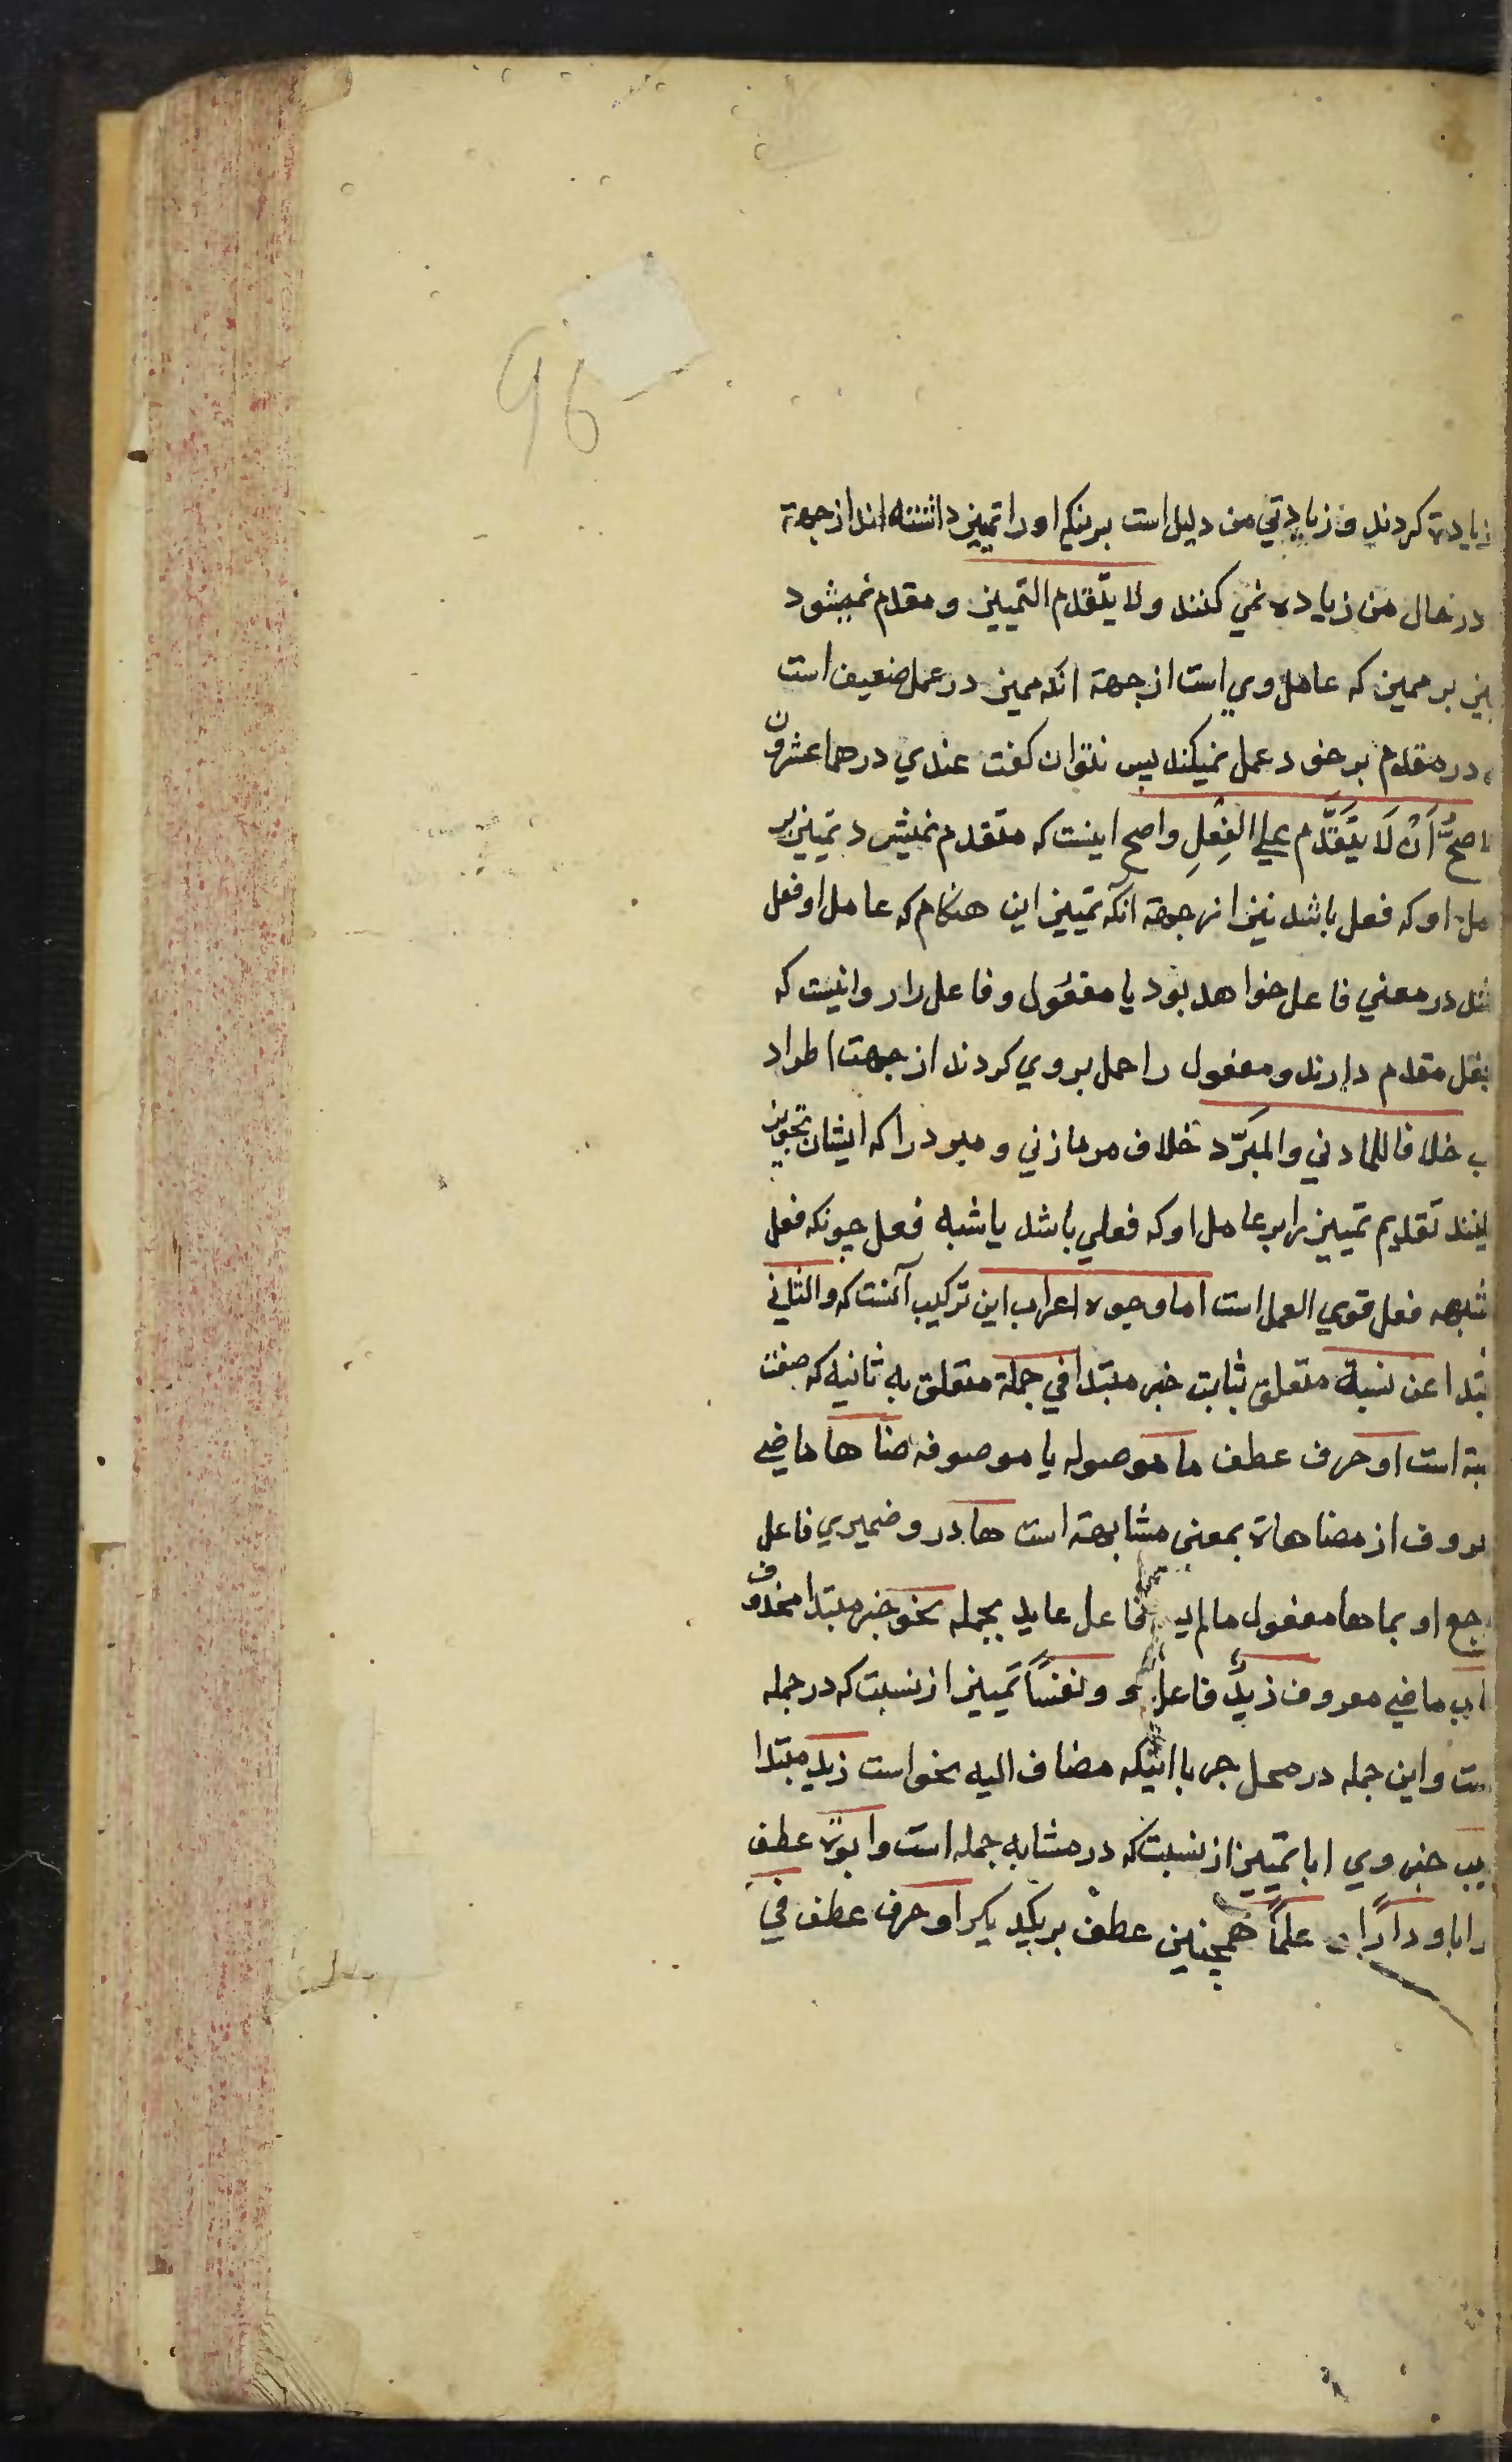 96
زیادة کردند و زیادتي من دلیل است برینکه او را تمییز داشته اند از جهة
در حال من زیاده نمي کنند ولا یتقدم التمییز و مقدم نمیشود
بر ممیز که عامل وي است از جهة انکه ممیز در عمل ضعیف است
در مقدم بر خود عمل نمیکند پس نتوان کفت عندي درهما عشرون
اصحُّ أَنْ لَا یَتَقَدَّم علی الفِعْلِ واصح اینست که متقدم نمیشود تمییز بر
او که فعل باشد نیز از جهة آنکه تمییز این هنکام که عامل او فعل
در معني فاعل خواهد بود یا مفعول و فاعل را روا نیست که
مقدم دارند و مفعول را حمل بر وي کردند از جهت اطراد
خلافا للمازني والمبَرّد خلاف مر مازني و مبرد را که ایشان تجویز
کنند تقدیم تمییز را بر عامل او که فعلي باشد یا شبه فعل چونکه فعل
شبهه فعل قوي العمل است اما وجوه اعراب این ترکیب آنست که والثاني
مبتدا عن نسبة متعلق بثابت خبر مبتدا في جملة متعلق به ثانیه که صفت
است او حرف عطف ما موصوله یا موصوفه ضاها ماضي
از مضاهاة بمعنی مشابهة است ها در و ضمیري فاعل
او بما ها مفعول مالم فاعل عاید بجمله نحو خبر مبتدا محذوف
ماضي معروف زیدٌ فاعل و ونفسًا تمییز از نسبت که در جمله
است و این جمله در محل جر با اینکه مضاف الیه نحو است زید مبتدا
خبر وي ابا تمییز از نسبت که در مشابه جمله است وابوّة عطف
ابا و دارًا علمًا همچنین عطف بر یکدیکر او حرف عطف في